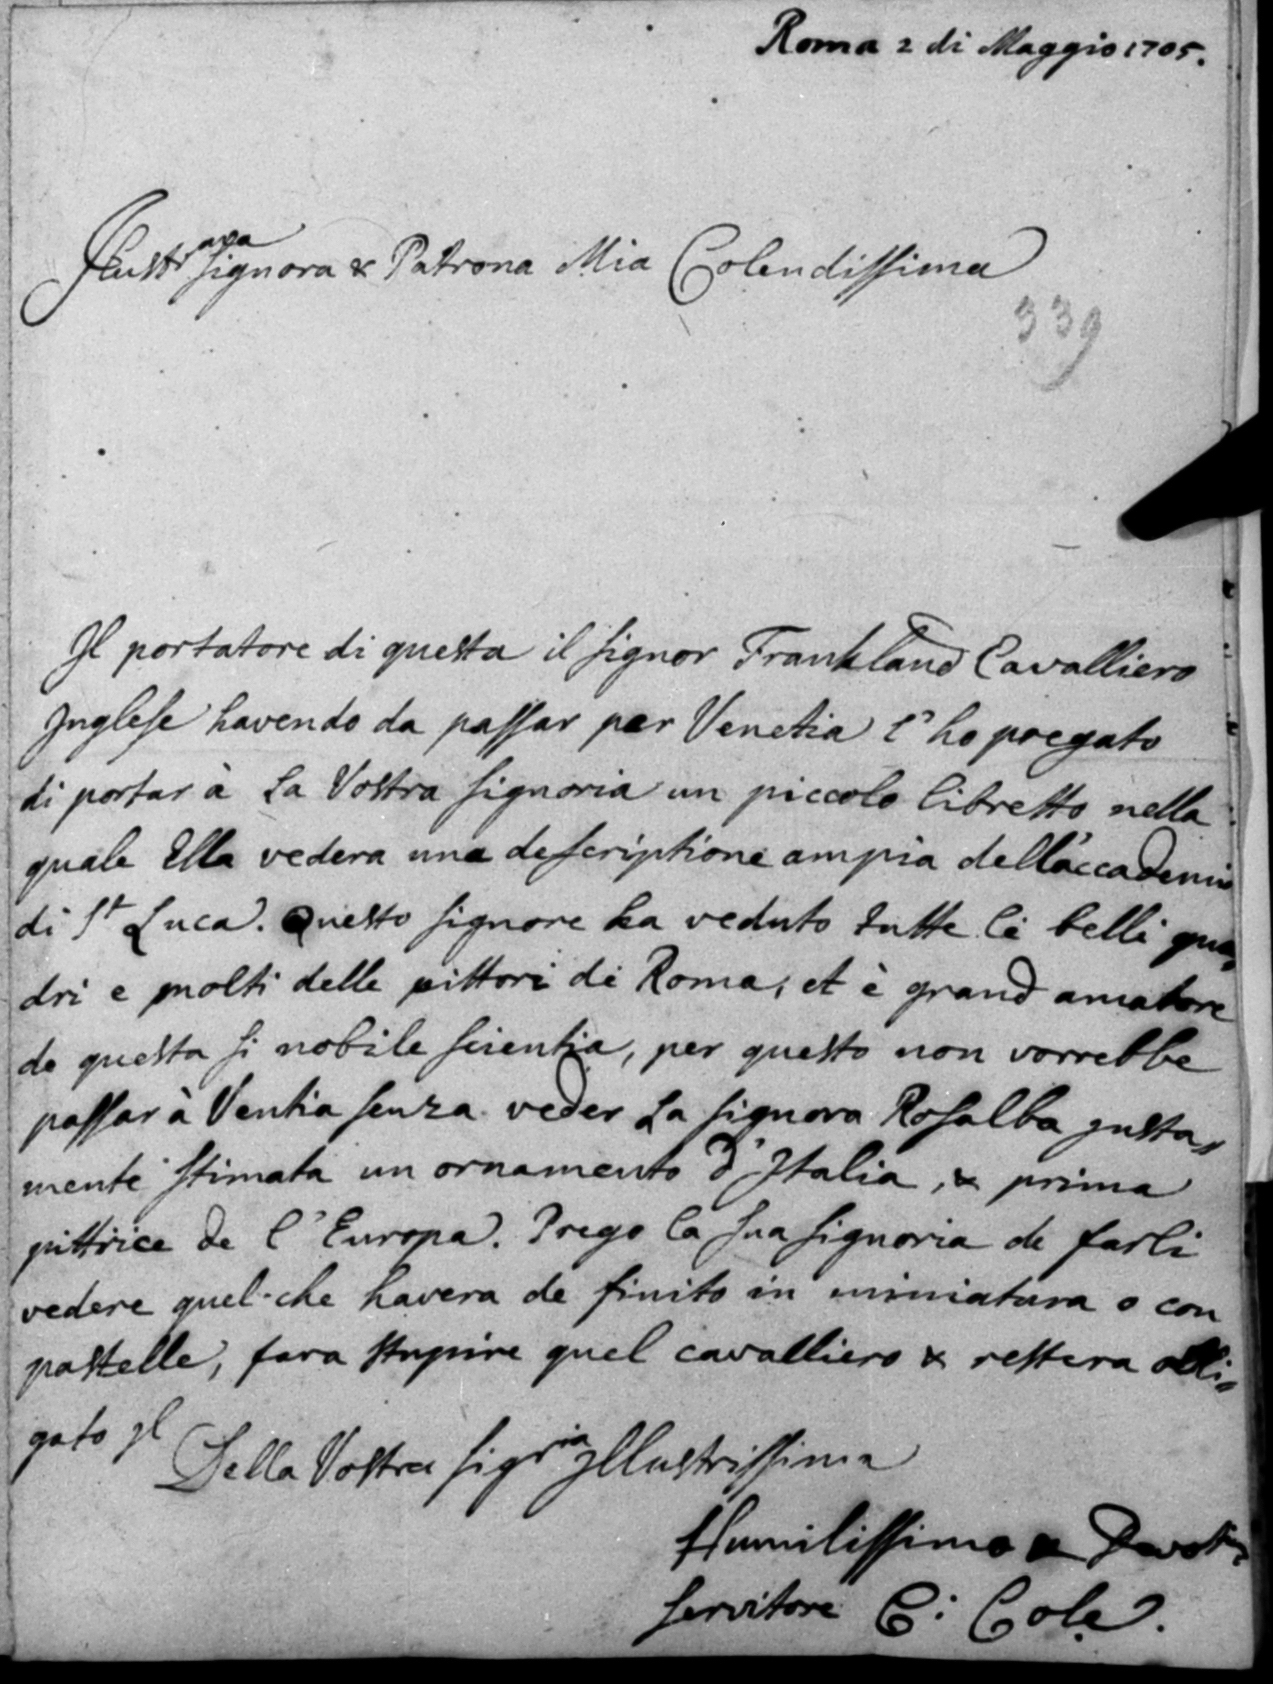 Roma 2 di Maggio 1705.
Illustr ma Signora & Patrona Mia Colendissima
339
Il portatore di questa il Signor Frankland Cavalliero
Inglese havendo da passar per Venetia l'ho pregato
di portar à La Vostra Signoria un piccolo libretto nella
quale Ella vedera una descriptione ampia dell'accademia
di St Luca. Questo Signore ha veduto tutte li belli qua,
dri e molti delle pittori di Roma, et è grand amatore
de questa si nobile scientia, per questo non vorrebbe
passar à Ventia senza veder La Signora Rosalba justa,,
mente stimata un ornamento d'Italia, & prima
pittrice de l'Europa. Prego la sua Signoria de farli
vedere quel-che havera de finito in miniatura o con
pastelle, fara stupire quel cavalliero & restera obli,,
gato il
Della Vostra Sigria Illustrissima
Humilissimo & Devotm
Servitore C: Cole.